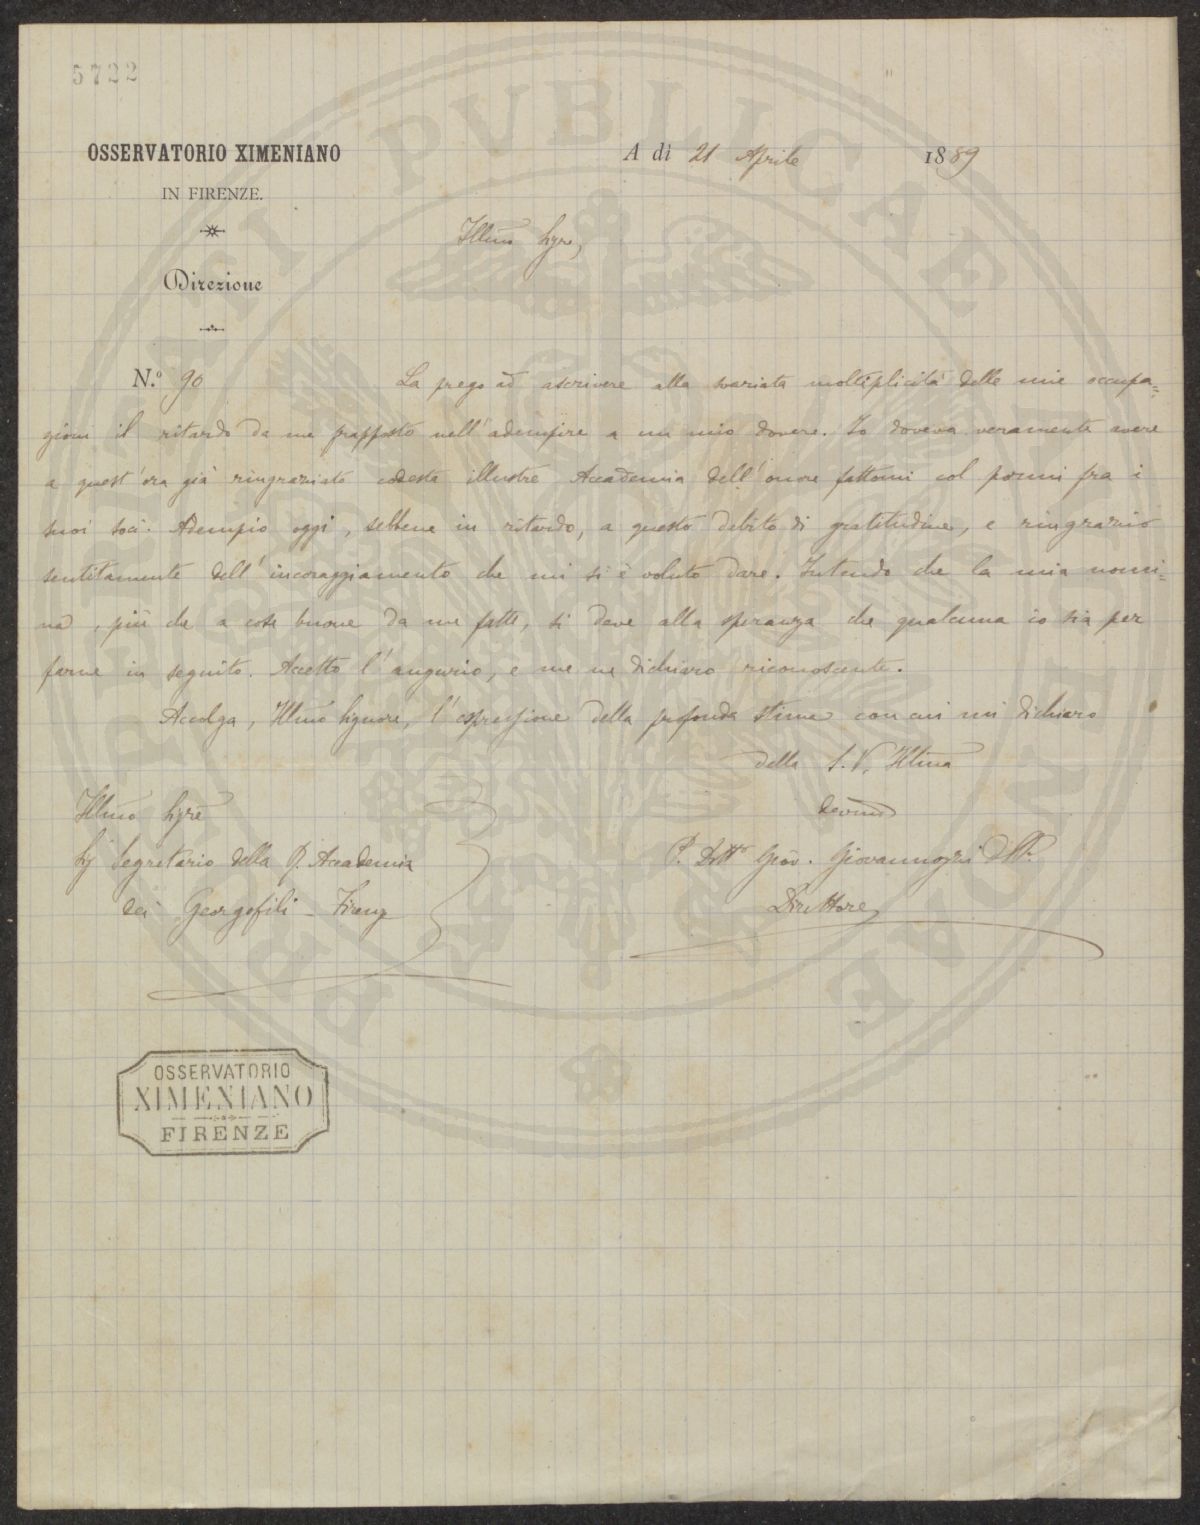 5722
OSSERVATORIO XIMENIANO
IN FIRENZE.
Direzione
A dì 21 Aprile 1889
Illmo Sigre,
N.º 90
La prego ad ascrivere alla svariata molteplicità delle mie occupa=
zioni il ritardo da me frapposto nell'adempire a un mio dovere. Io doveva veramente avere
a quest'ora già ringraziato codesta illustre Accademia dell'onore fattomi col pormi fra i
suoi soci. Adempio oggi, sebbene in ritardo, a questo debito di gratitudine, e ringrazio
sentitamente dell'incoraggiamento che mi si è voluto dare. Intendo che la mia nomi=
na, più che a cose buone da me fatte, si deve alla speranza che qualcuna io sia per
farne in seguito. Accetto l'augurio, e me ne dichiaro riconoscente.
Accolga, Illmo Signore, l'espressione della profonda stima con cui mi dichiaro
della S.V. Illma
devmo
P. Dott. Giov. Giovannozzi
Direttore
Illmo Sigre
Segretario della R. Accademia
dei Georgofili - Firenze
OSSERVATORIO
XIMENIANO
FIRENZE